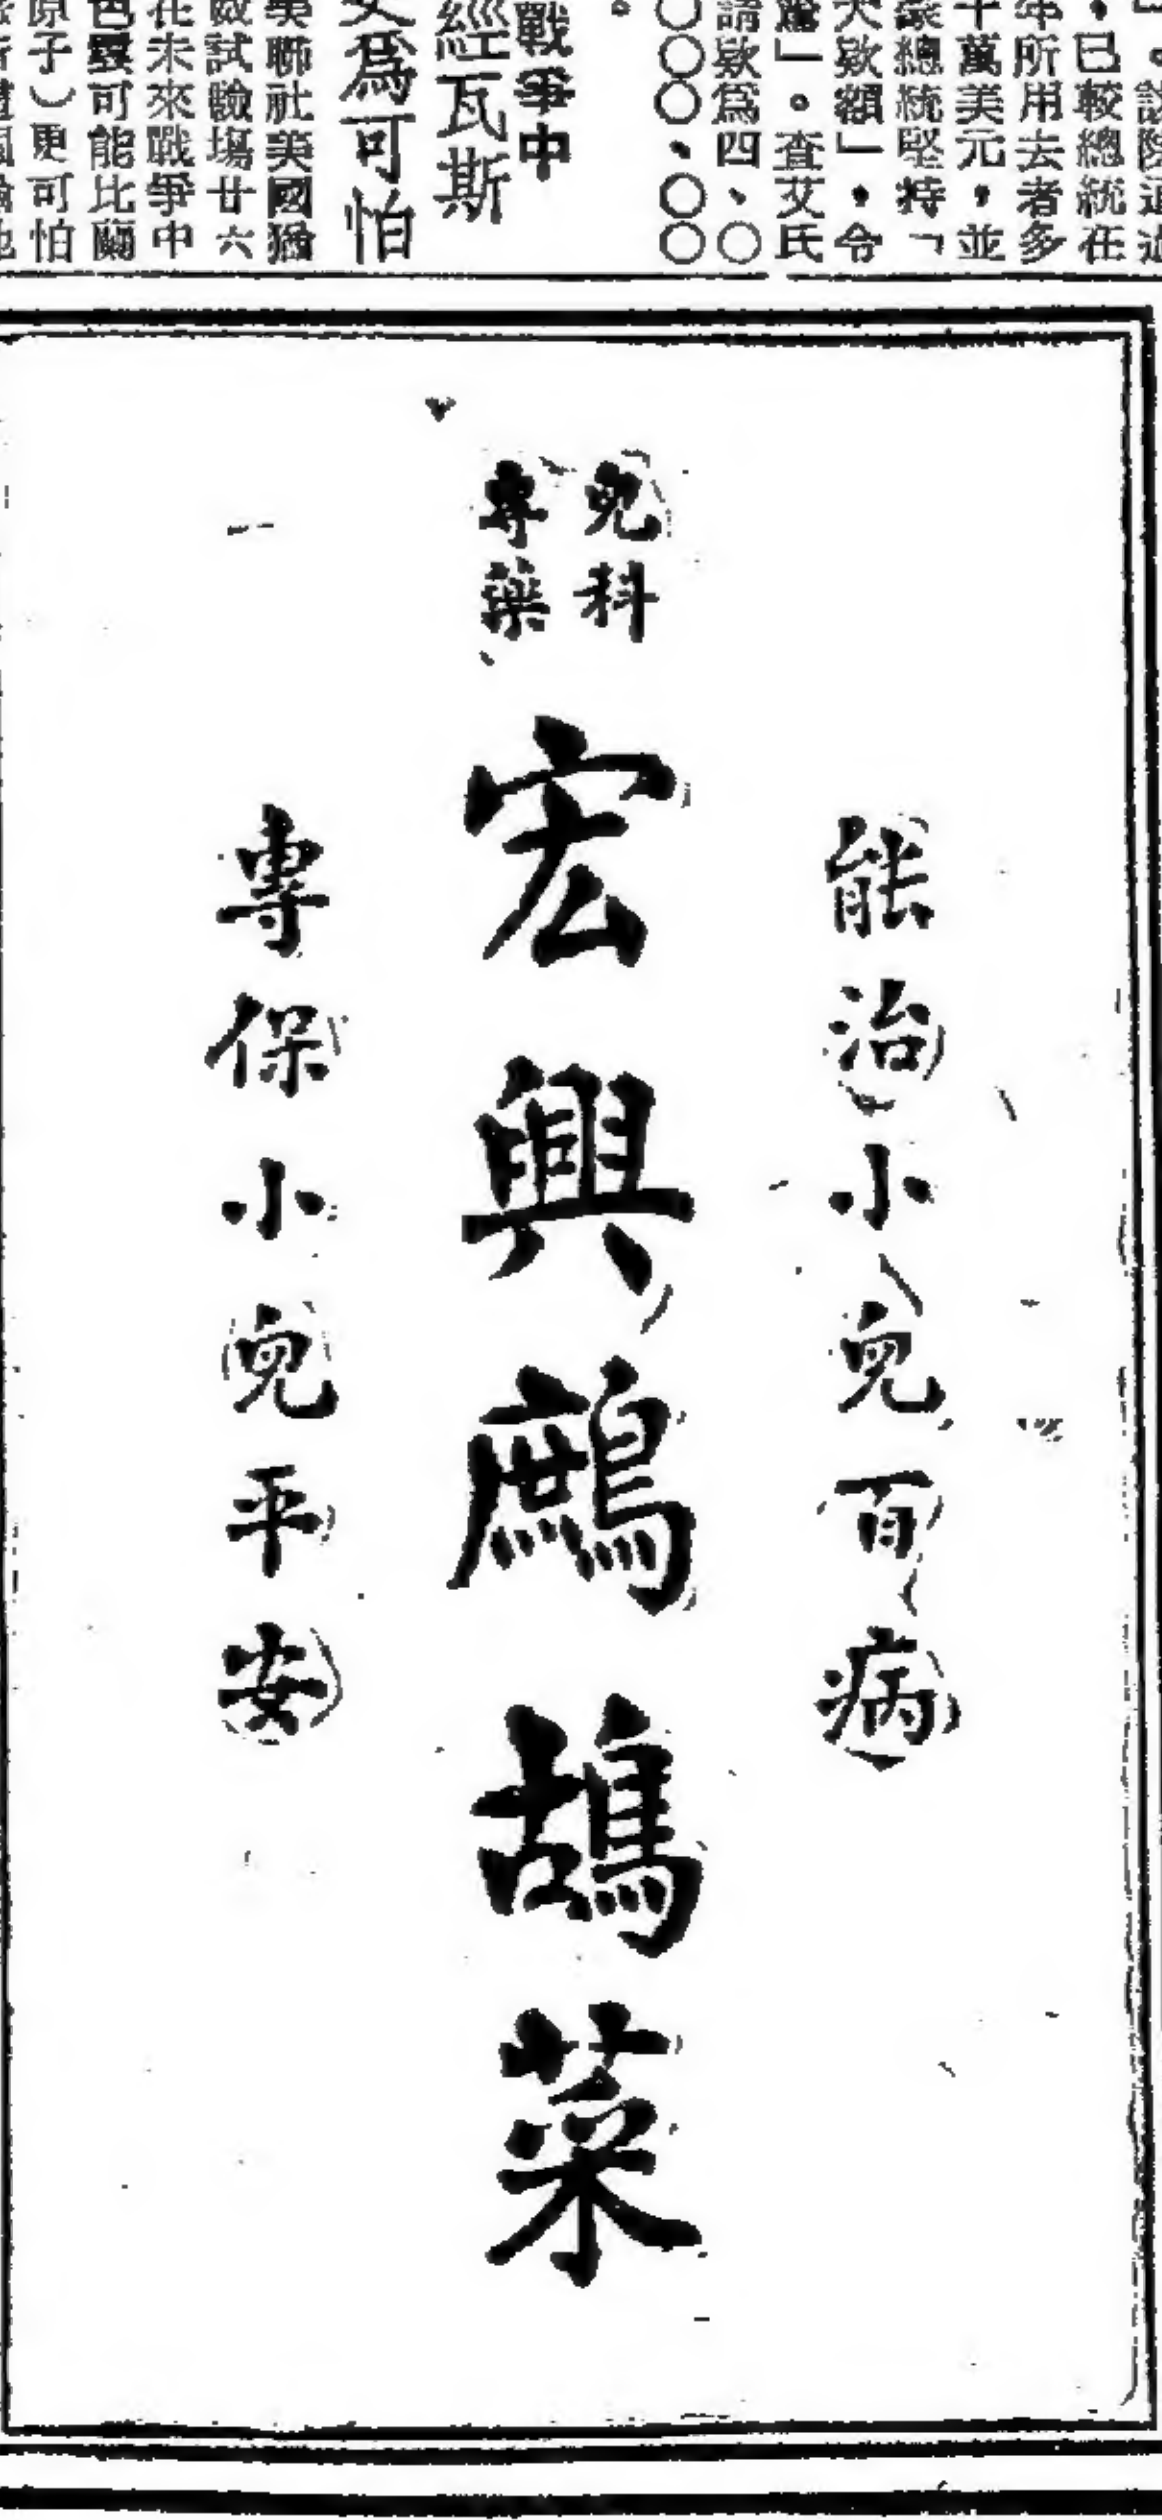 ，已較總統在
年所用去者多
十萬美元，並
總統堅持「
大欵額」，令
」。查艾氏
請欵爲四、〇
〇〇〇、〇〇
。
戰爭中
經瓦斯
爲可怕
美聯社美國猶
試驗塲廿六
在未來戰爭中
可能比
原子）更可怕
能治小兒百病
兒科
專藥
宏興鷓鴣菜
專保小兒平安